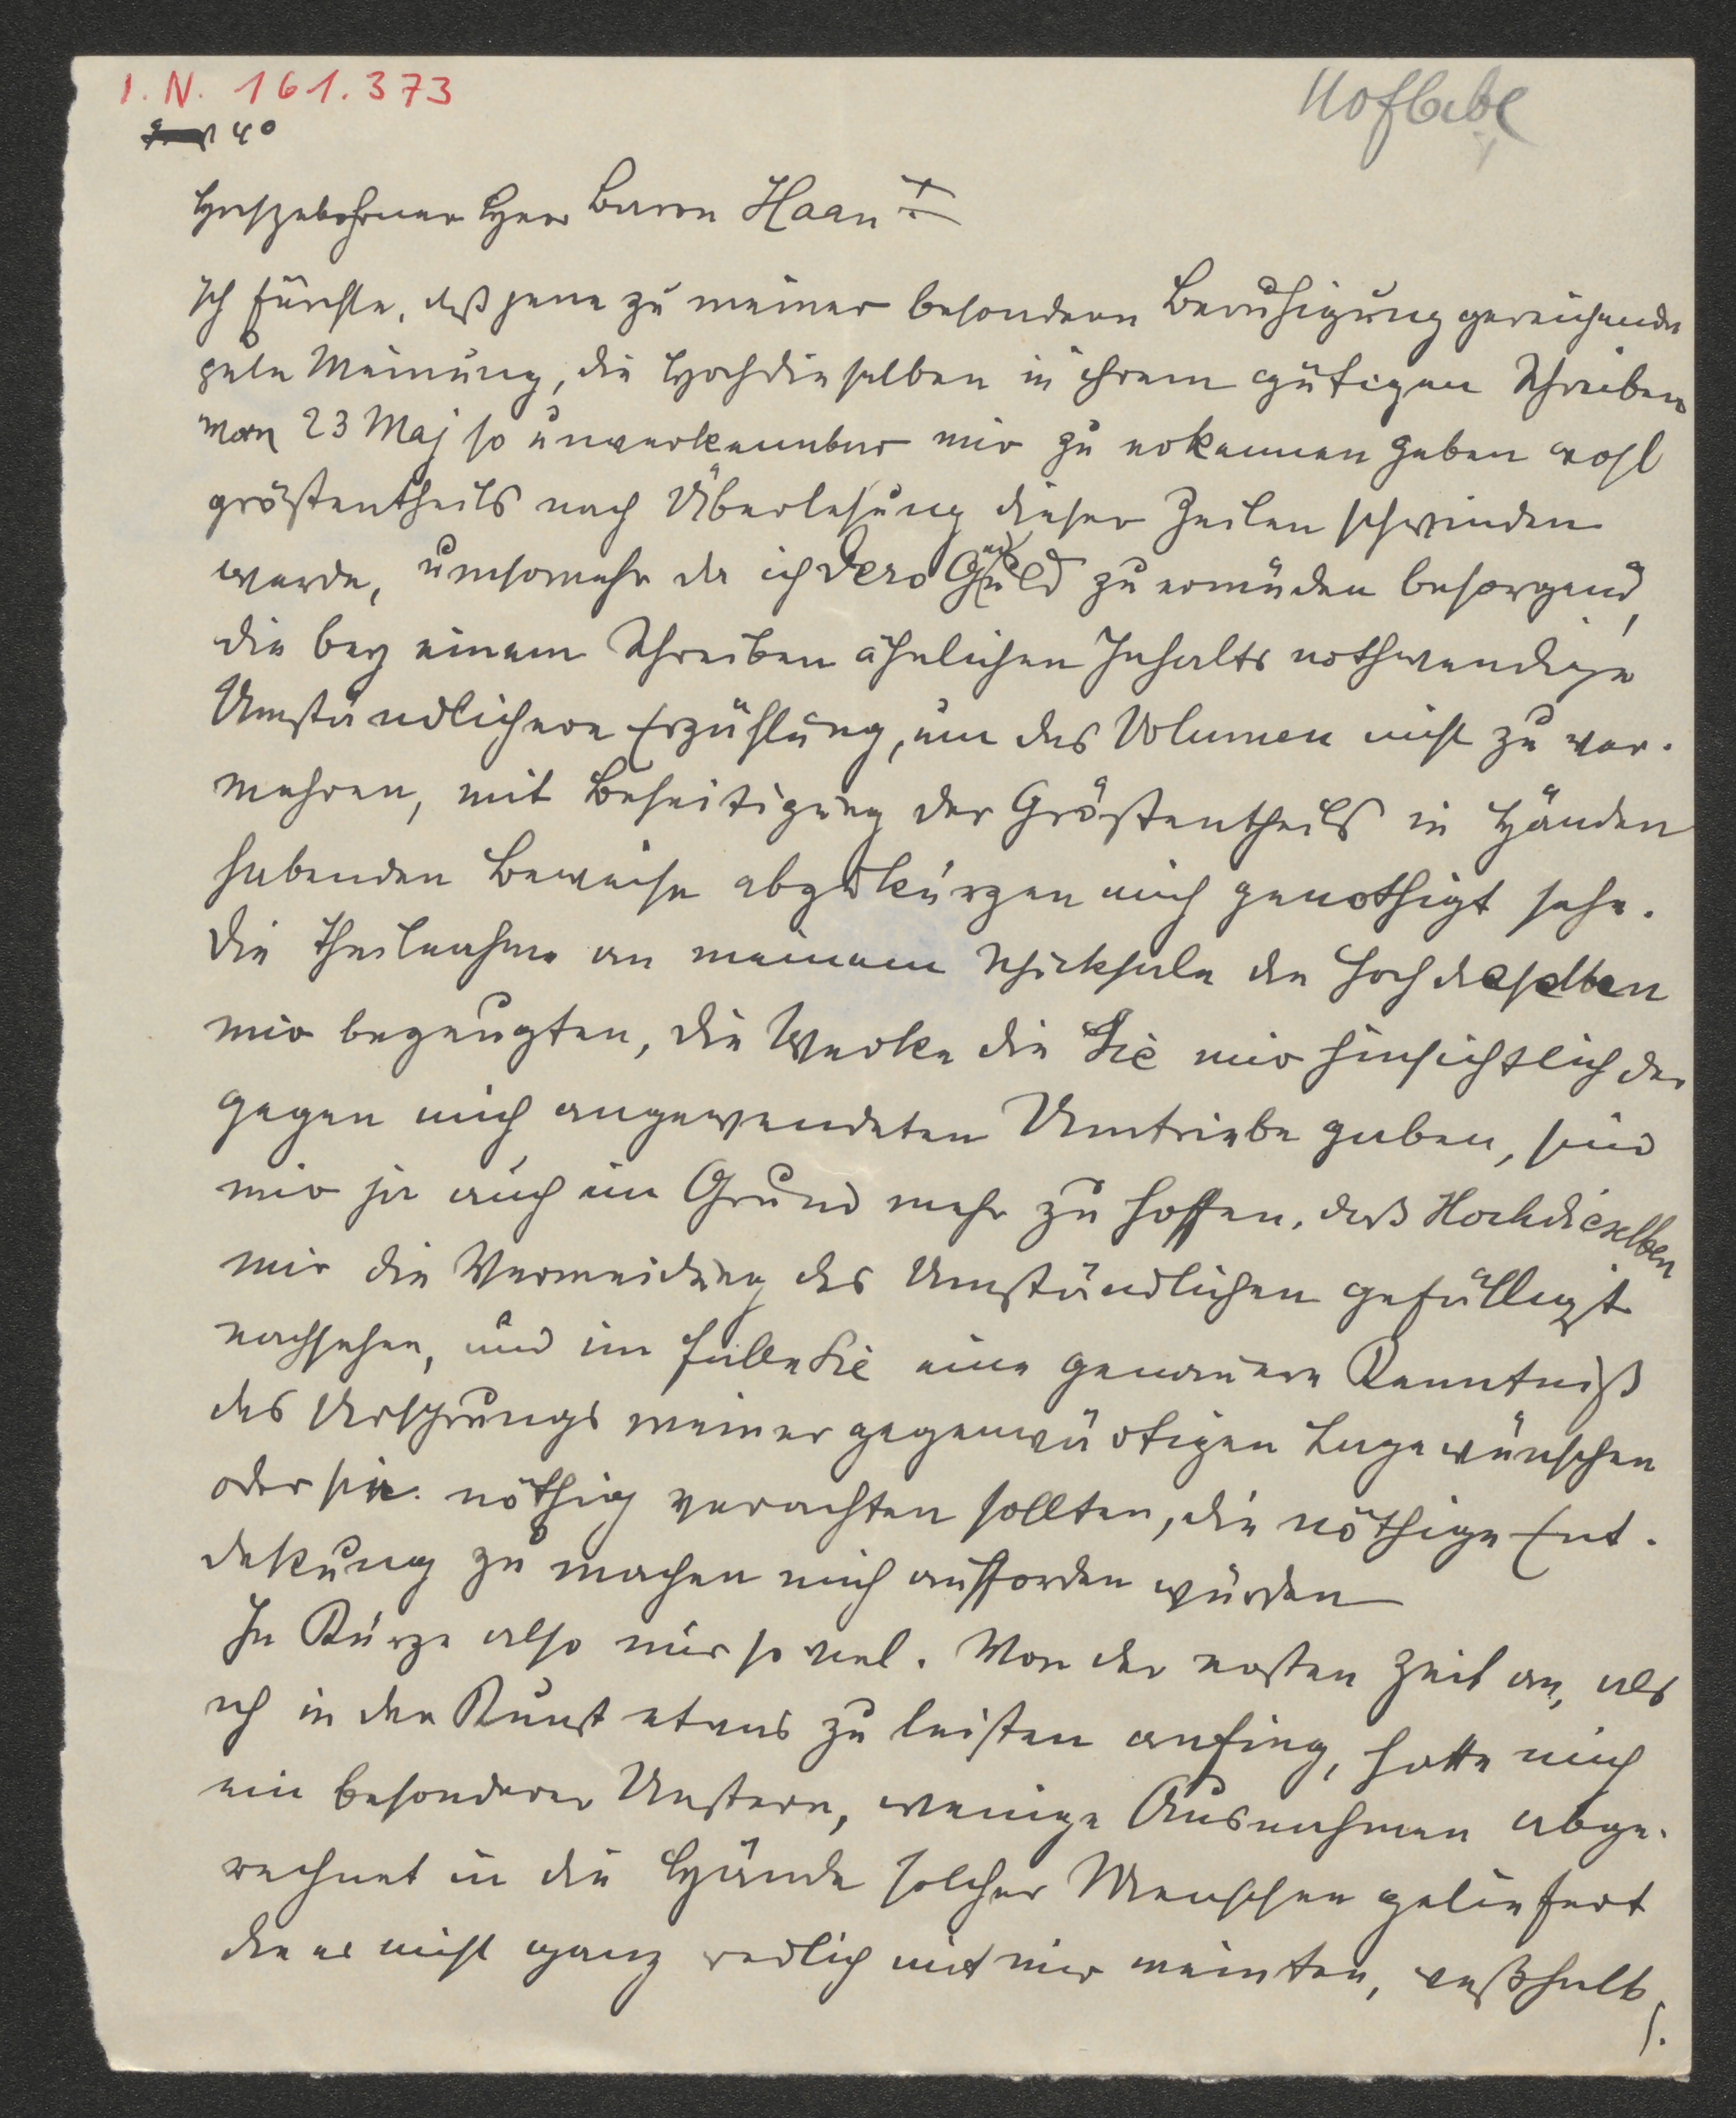 I. N. 161.373
4°
Hochgebohrner Herr Baron Haan
Ich fürchte, daß jene zu meiner besondern Beruhigung gereichende
gute Meinung, die Hochdieselben in ihrem gütigen Schreiben
vom 23 Maj so unverkennbar mir zu erkennen gaben wohl
gröstentheils nach Überlesung dieser Zeilen schwinden
werde, umsomehr da ich Dero Geduld zu ermüden besorgend,
die bey einem Schreiben ähnlichen Inhalts nothwendige
Umständlichere Erzählung, um das Volumen nicht zu ver-
mehren, mit Beseitigung der Gröstentheils in Händen
habenden Beweise abzukürzen mich genothigt sehe.
Die Theilnahme an meinem Schicksale die Hochdieselben
mir bezeugten, die Werke die Sie mir hinsichtlich der
gegen mich angewendeten Umtriebe gaben, sind
mir ja auch ein Grund mehr zu hoffen, daß Hochdieselben
mir die Vermeidung des Umständlichen gefälligst
nachsehen, und im falle Sie eine genauere Kenntniß
des Ursprungs meiner gegenwärtigen Lage wünschen
oder sie nöthig erachten sollten, die nöthige Ent-
dekung zu machen mich aufforden würden
In Kürze also nur so viel. Von der ersten Zeit an, als
ich in der Kunst etwas zu leisten anfing, hatte mich
ein besonderer Unstern, wenige Ausnahmen abge-
rechnet in die Hände solcher Menschen geliefert
die es nicht ganz redlich mit mir meinten, weßhalb